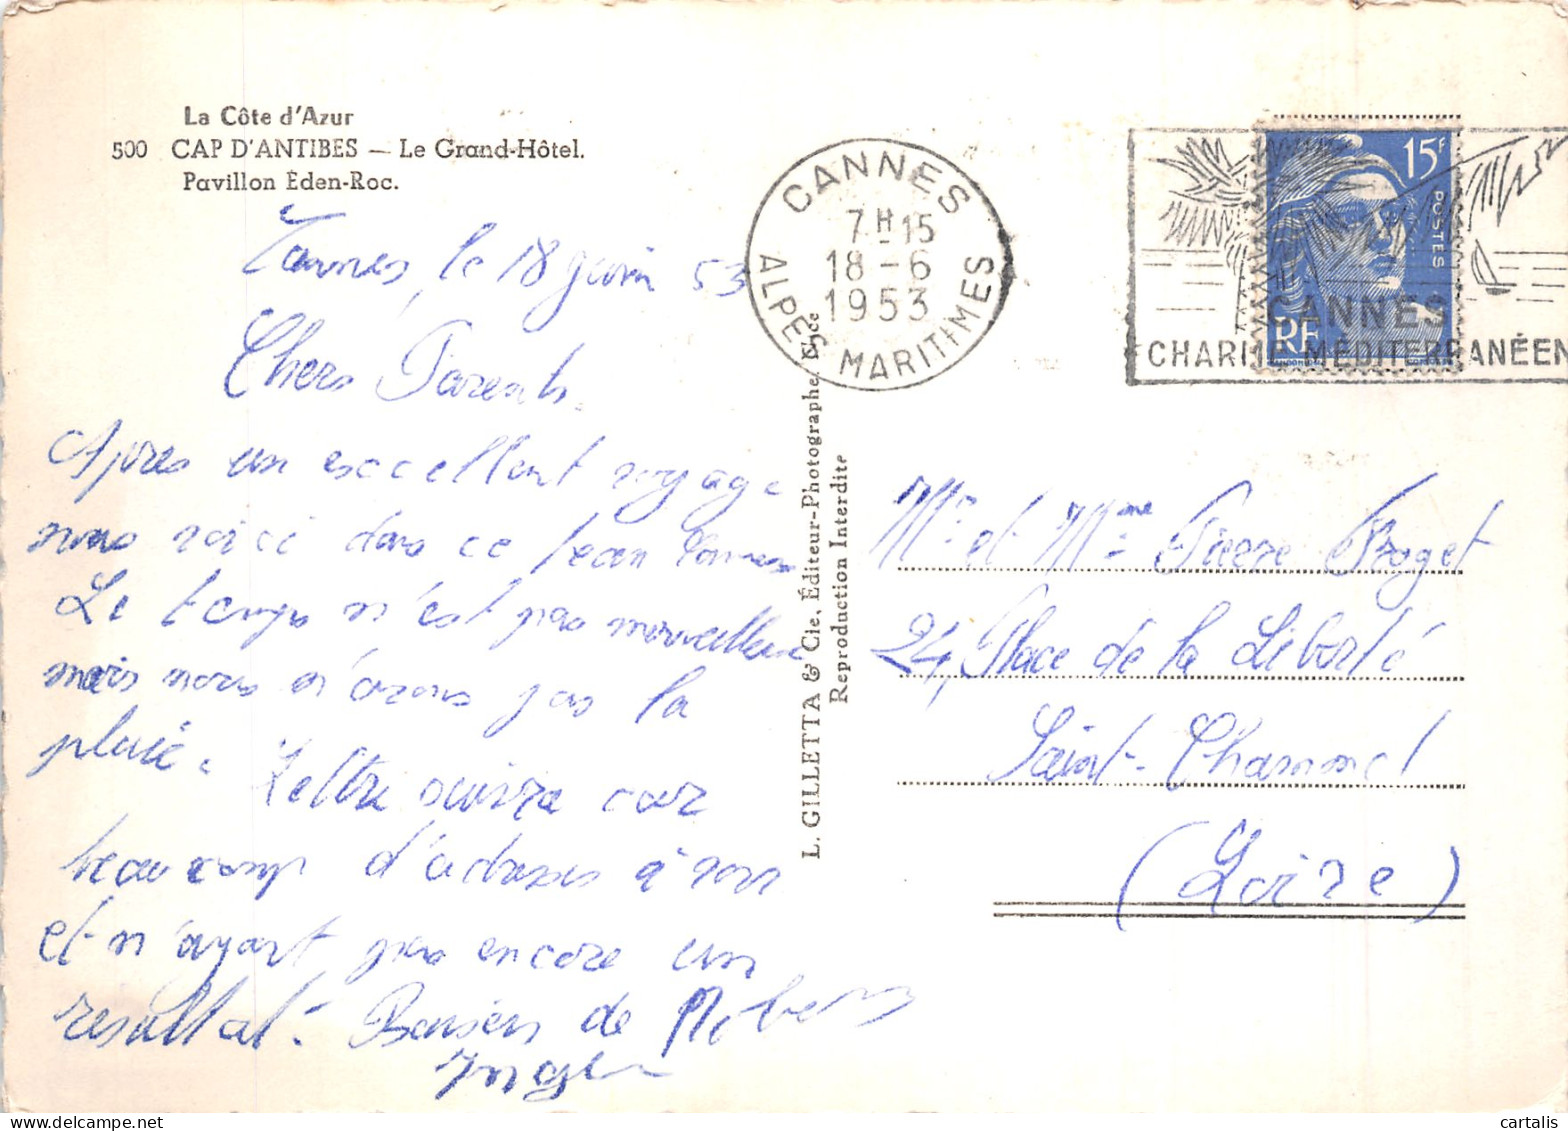 La Côte d'Azur
500 CAP D'ANTIBES — Le Grand-Hôtel.
Pavillon Éden-Roc.
Cannes, le 18 juin 53
Chers Parents.
Après un excellent voyage
nous voici dans ce beau Cannes
Le temps n'est pas merveilleux
mais nous n'avons pas la
pluie.
Lettre suivra car
beaucoup d'adresses à voir
et n'ayant pas encore un
résultat. Baisers de
L. GILLETTA & Cie, Éditeur-Photographe, Nice
Reproduction Interdite
CANNES
7H-15
18-6
1953
ALPES MARITIMES
15F
POSTES
RF
CANNES
CHARME MÉDITERRANÉEN
Mr et Mme Pierre
24, Place de la Liberté
Saint-Chamond
(Loire)
cartalis
delcampe.net